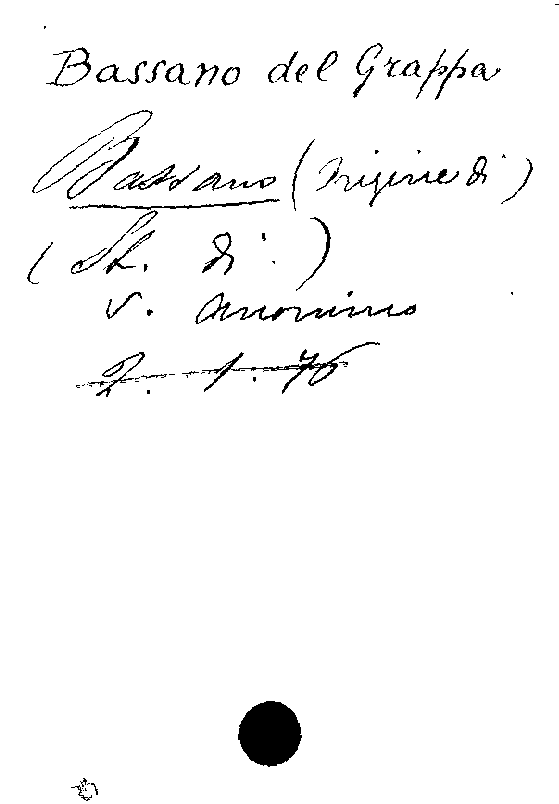 Bassano del Grappa
Bassano (Origine di)
(St. di.)
v. Anonimo
2. 1. 76